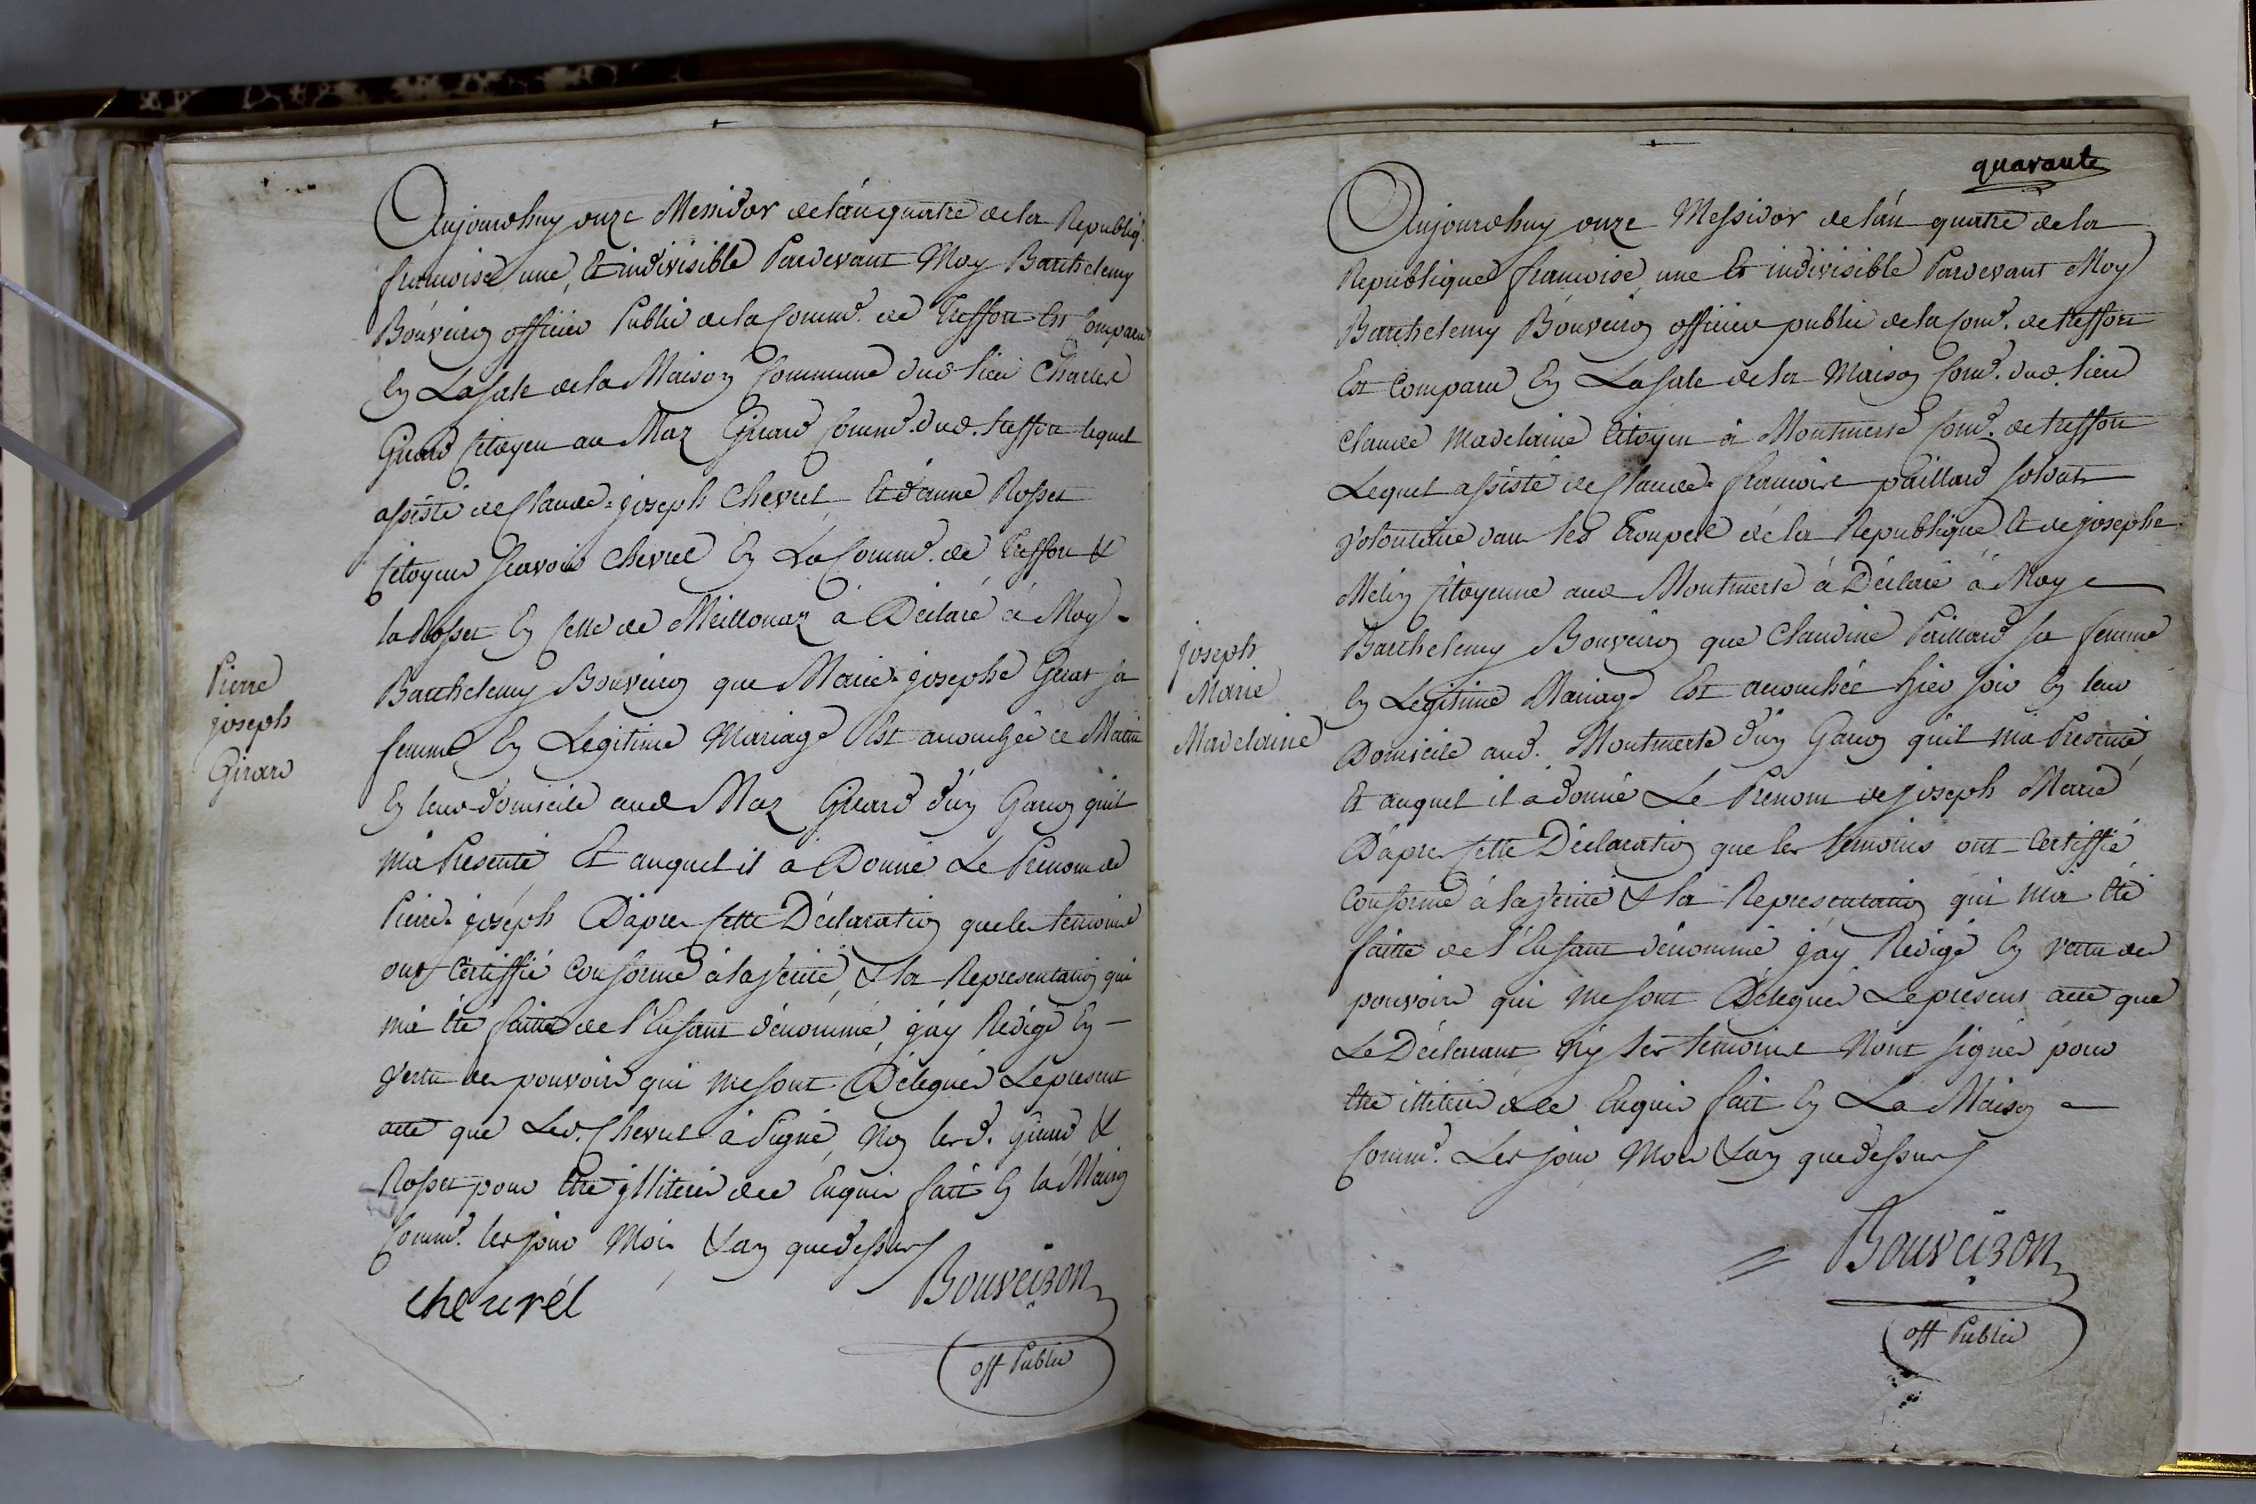 Aujourdhuy onze Messidor de l'an quatre de la Republiq.
francoise une, Et indivisible Pardevant Moy Barthelemy
Bouveiron officier Public de la Comm.e de Treffort Est Comparu
En La Sale de la Maison Commune dud. lieu Charles
Girard Citoyen au Maz Girard Comm.e dud. treffort lequel
assisté de Claude-joseph Chevrel Et d'anne Rosset
Citoyens scavoir Chevrel En La Comm.e de Treffort &
la Rosset En Celle de Meillonaz à Déclaré à Moy
Barthelemy Bouveiron que Marie-josephe sa
femme En Legitime Mariage Est acouchée ce Matin
En leur domicile aud. Maz Girard d'un Garçon qu'il
m'a Presenté Et auquel il a Donné Le Prenom de
Pierre-joseph D'apres Cette Déclaration que les temoins
ont Certiffié Conforme à la verité, & la Representation qui
m'a été faitte de l'Enfant dénommé, j'ay Redigé En
Vertu des pouvoirs qui me sont Délegués Le present
acte que Led. Chevrel à Signé, Non lesd. Girard &
Rosset pour Etre illiteré de ce Enquis fait En la Maison
Comm.e les jour Mois & an que dessus
Pierre
joseph
Girard
cheurél
Bouveiron
off Public
quarante
Aujourdhuy onze Messidor de l'an quatre de la
Republique francoise, une Et indivisible Pardevant Moy
Barthelemy Bouveiron officier public de la Com.e de treffort
Est Comparu En La Sale de la Maison Com.e dud. lieu
Claude Madelaine Citoyen à Montmerle Com.e de treffort
Lequel assisté de Claude-francoise paillard soldat
volontaire dans les Troupes de la Republique Et de josephe
Melin Citoyenne aud. Montmerle à Déclaré à Moy
Barthelemy Bouveiron que Claudine Paillard sa femme
En Legitime Mariage Est acouchée hier soir En leur
Domicile aud. Montmerle d'un Garçon qu'il m'a Presenté
Et auquel il a donné Le Prenom de joseph Marie
D'apres Cette Déclaration que les temoins ont Certiffié
Conforme à la verité & la Representation qui m'a été
faitte de l'Enfant dénommé j'ay Redigé En vertu des
pouvoirs qui me sont Délegués Le present acte que
Le Déclarant Ny les temoins N'ont signés pour
Etre illiteré de ce Enquis fait En La Maison
Comm.e Les jour Mois & an que dessus
joseph
Marie
Madelaine
Bouveiron
off Public